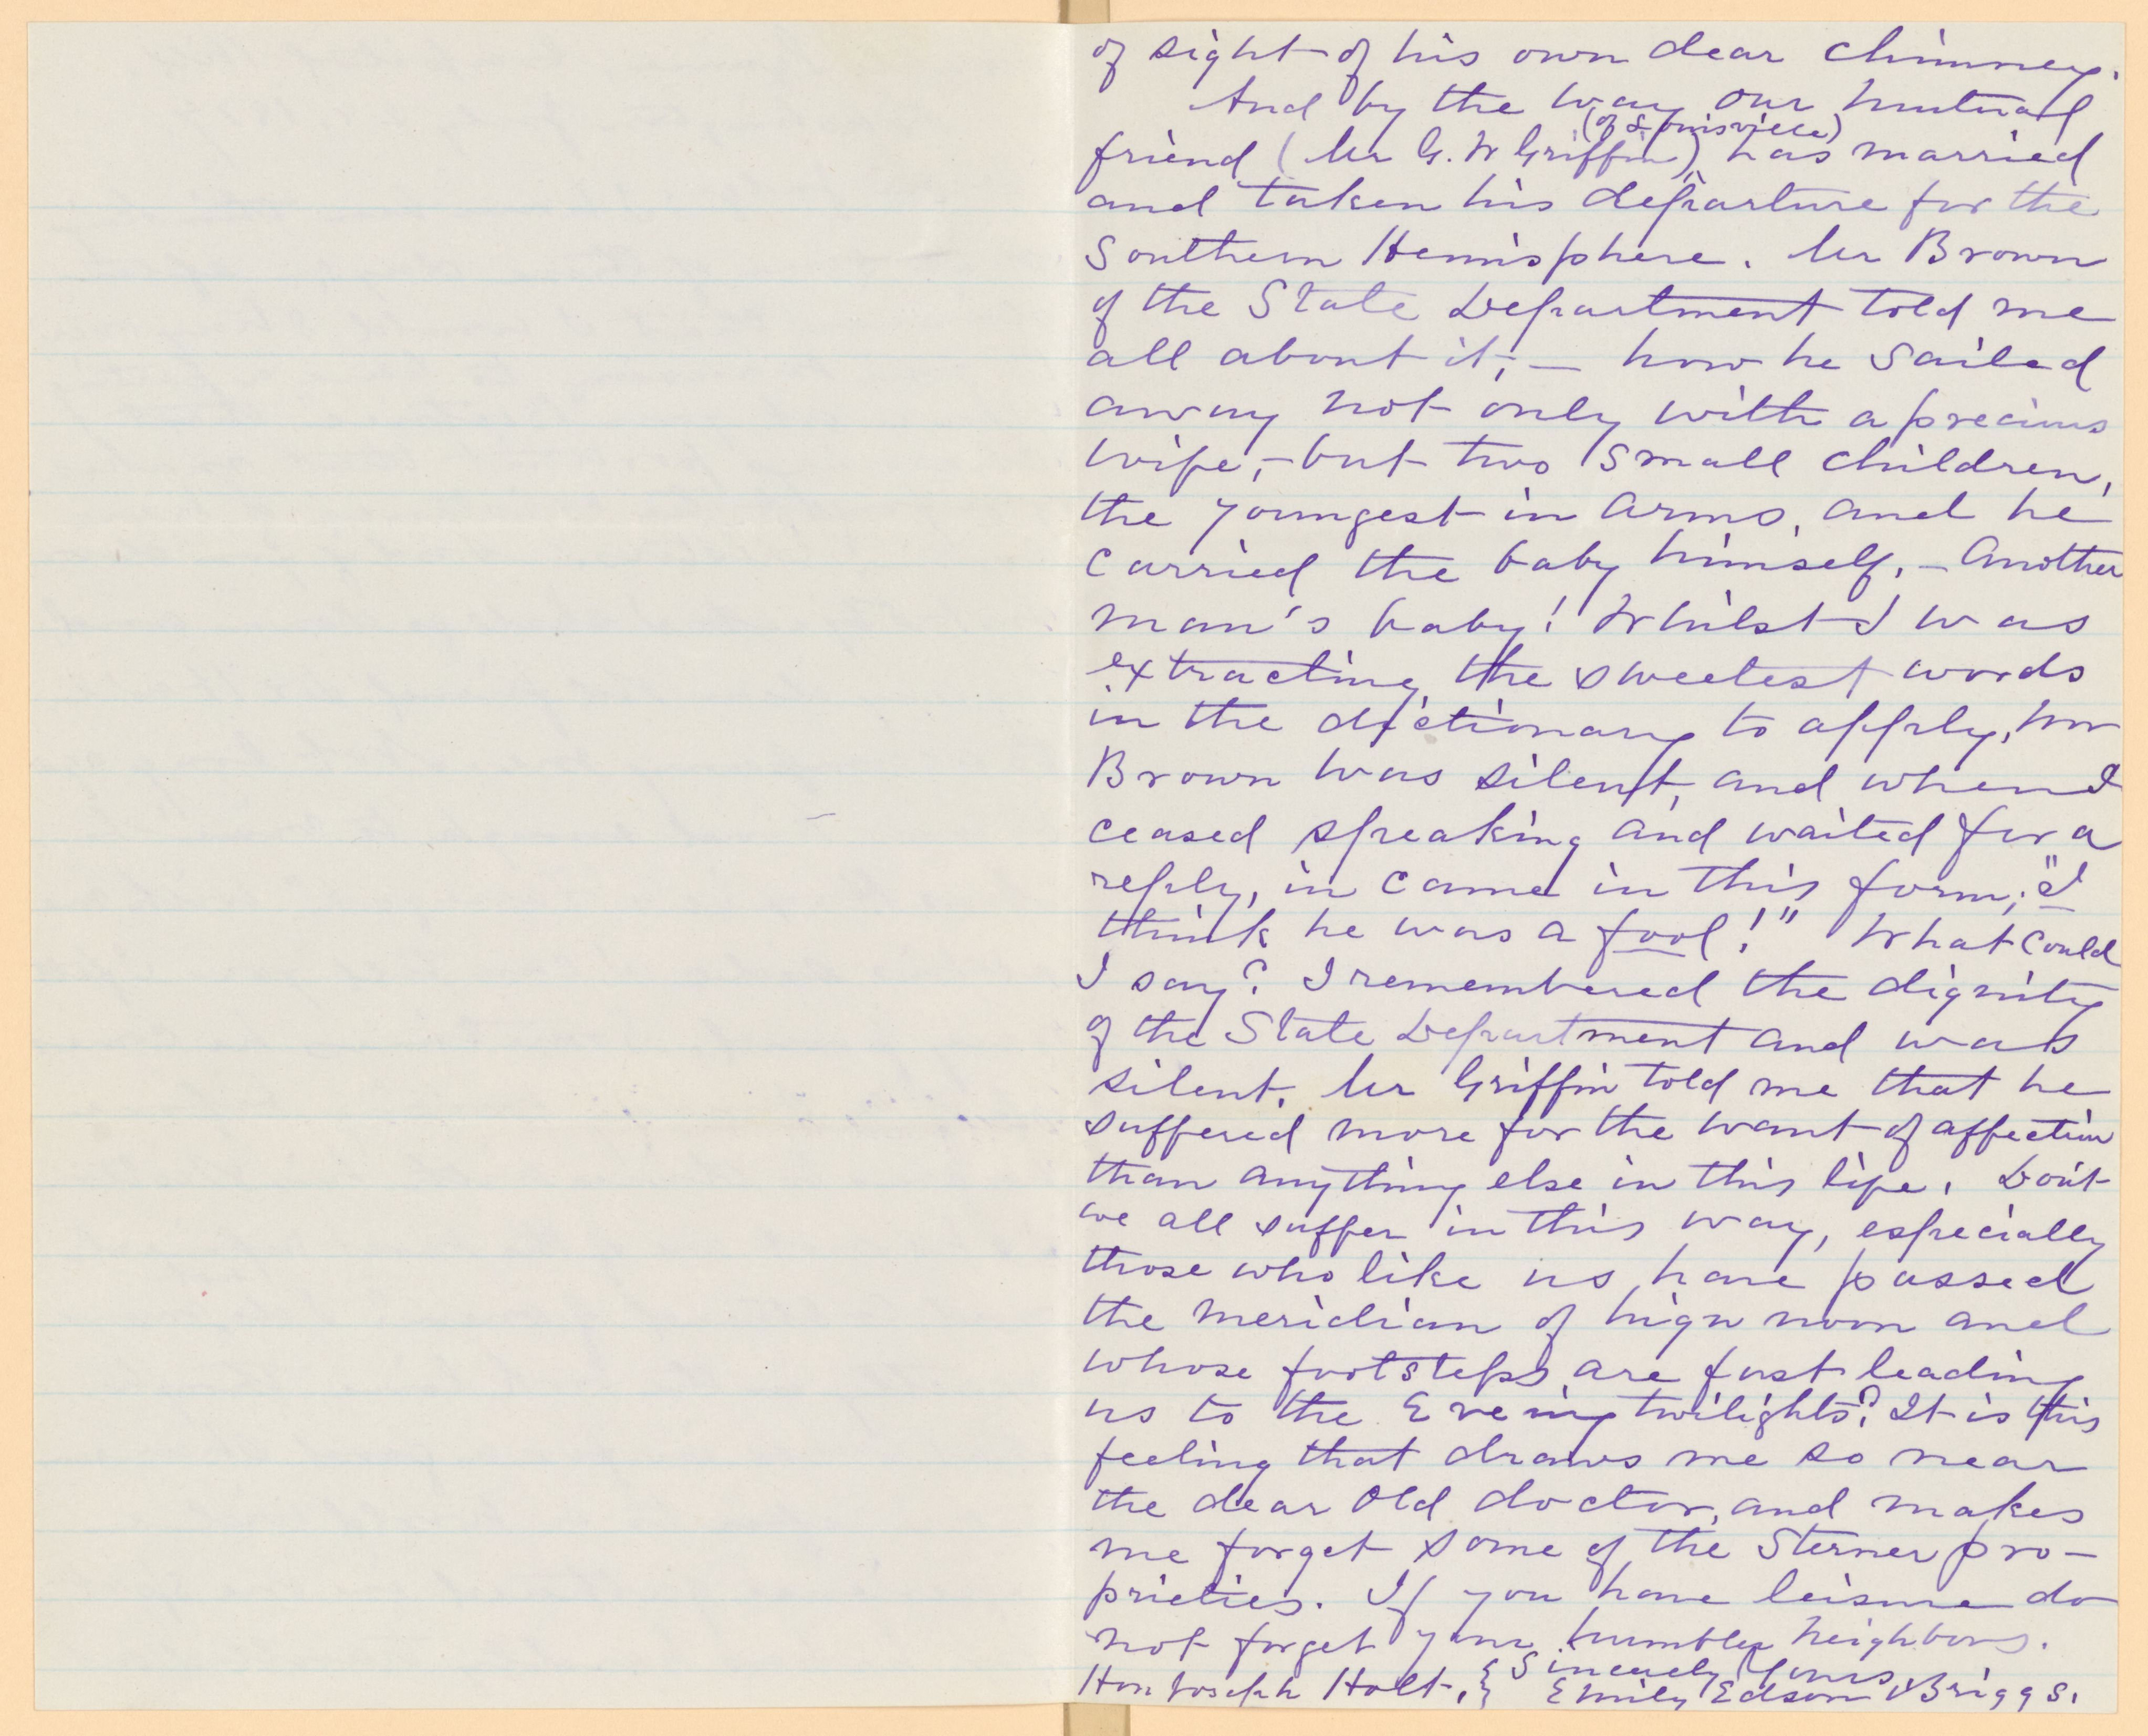 of sight of his own dear chimney.
And by the way our mutual
(of Louisville)
friend (Mr G. W Griffin) has married
and taken his departure for the
Southern Hemisphere. Mr Brown
of the State Department told me
all about it; — how he sailed
away not only with a precious
wife, - but two small children,
the youngest in arms, and he
carried the baby himself, - another
man's baby! Whilst I was
extracting the sweetest words
in the dictionary to apply, Mr
Brown was silent, and when I
ceased speaking and waited for a
reply, in came in this form; "I
think he was a fool!" What could
I say? I remembered the dignity
of the State Department and was
silent. Mr Griffin told me that he
suffered more for the want of affection
than anything else in this life. Don't
we all suffer in this way, especially
those who like us have passed
the meridian of high noon and
whose footsteps are fast leading
us to the Evening twilights? It is this
feeling that draws me so near
the dear Old doctor, and makes
me forget some of the Sterner pro-
prieties. If you have leisure do
not forget your humble neighbors.
Sincerely Yours
Hon Joseph Holt, } Emily Edson Briggs.